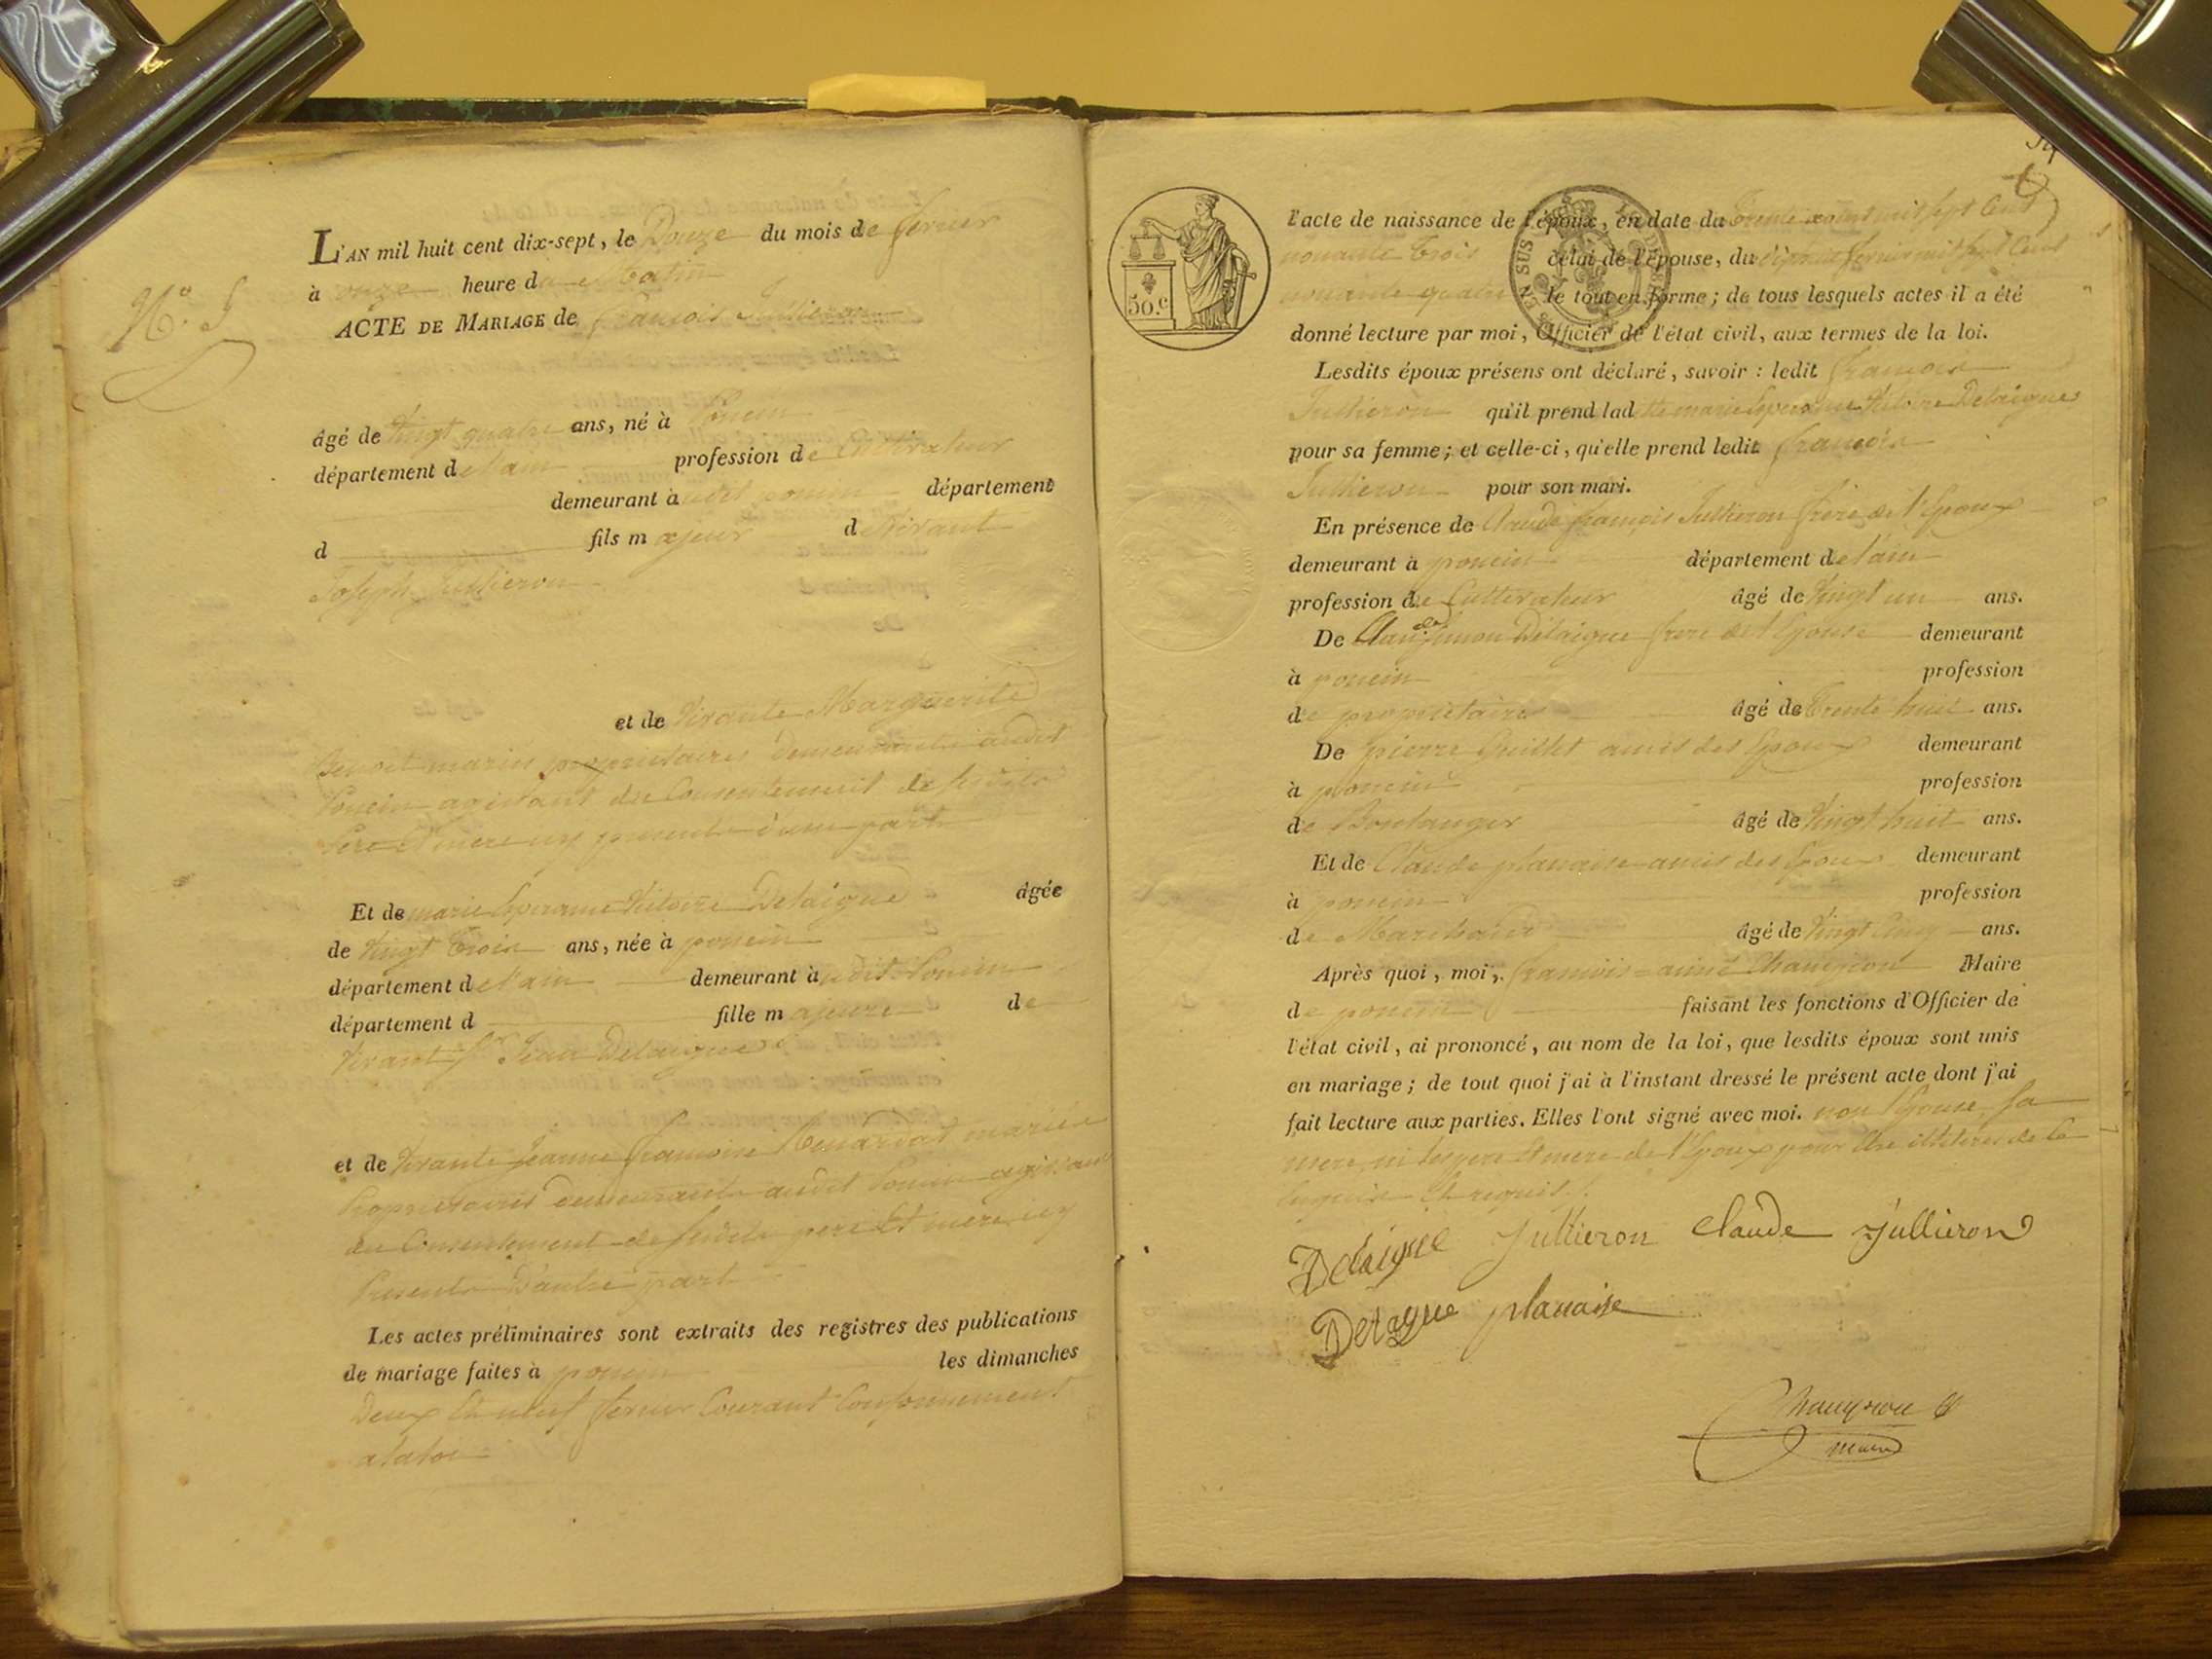 N.º 5
L'AN mil huit cent dix-sept, le Douze du mois de fevrier
à onze heure du Matin
ACTE DE MARIAGE de françois Jullieron
âgé de Vingt quatre ans, né à Poncin
département de l'ain profession de Cultivateur
demeurant à udit poncin département
d fils majeur de Vivant
Joseph Jullieron
et de Vivante Marguerite
Benoit mariés propriétaires demeurants audit
Poncin agissant du Consentement de sesdits
Pere Et mere icy presents d'une part
Et de marie Esperance Victoire Delaigue âgée
de Vingt Trois ans, née à poncin
département de l'ain demeurant à udit Poncin
département d fille majeure de
Vivant Sr Jean Delaigue
et de Vivante Jeanne françoise mariés
Propriétaires demeurants audit Poncin agissant
du Consentement de sesdits pere Et mere icy
Presents D'autre part
Les actes préliminaires sont extraits des registres des publications
de mariage faites à poncin les dimanches
Deux Et neuf fevrier Courant Conformement
a la loi
50.c
EN SUS
l'acte de naissance de l'époux, en date du Trente mil sept Cent
nonante Trois celui de l'épouse, du fevrier mil sept Cent
nonante quatre le tout en forme; de tous lesquels actes il a été
donné lecture par moi, Officier de l'état civil, aux termes de la loi.
Lesdits époux présens ont déclaré, savoir : ledit françois
Jullieron qu'il prend ladtte marie Esperance Victoire Delaigue
pour sa femme; et celle-ci, qu'elle prend ledit françois
Jullieron pour son mari.
En présence de Claude françois Jullieron frere de l'Epoux
demeurant à poncin département de l'ain
profession de Cultivateur âgé de Vingt un ans.
De Claude Simon Delaigue frere de l'Epouse demeurant
à poncin profession
de propriétaire âgé de Trente huit ans.
De pierre Guillet amis des Epoux demeurant
à poncin profession
de Boulanger âgé de Vingt huit ans.
Et de Claude planaise amis des Epoux demeurant
à poncin profession
de Marchand âgé de Vingt Cinq ans.
Après quoi, moi, françois aimé Maire
de poncin faisant les fonctions d'Officier de
l'état civil, ai prononcé, au nom de la loi, que lesdits époux sont unis
en mariage; de tout quoi j'ai à l'instant dressé le présent acte dont j'ai
fait lecture aux parties. Elles l'ont signé avec moi. non l'Epouse, sa
mere, ni les pere Et mere de l'Epoux pour être illitérés de ce
Enquis Et requis
Delaigue Jullieron Claude Jullieron
Delague planaise
maire